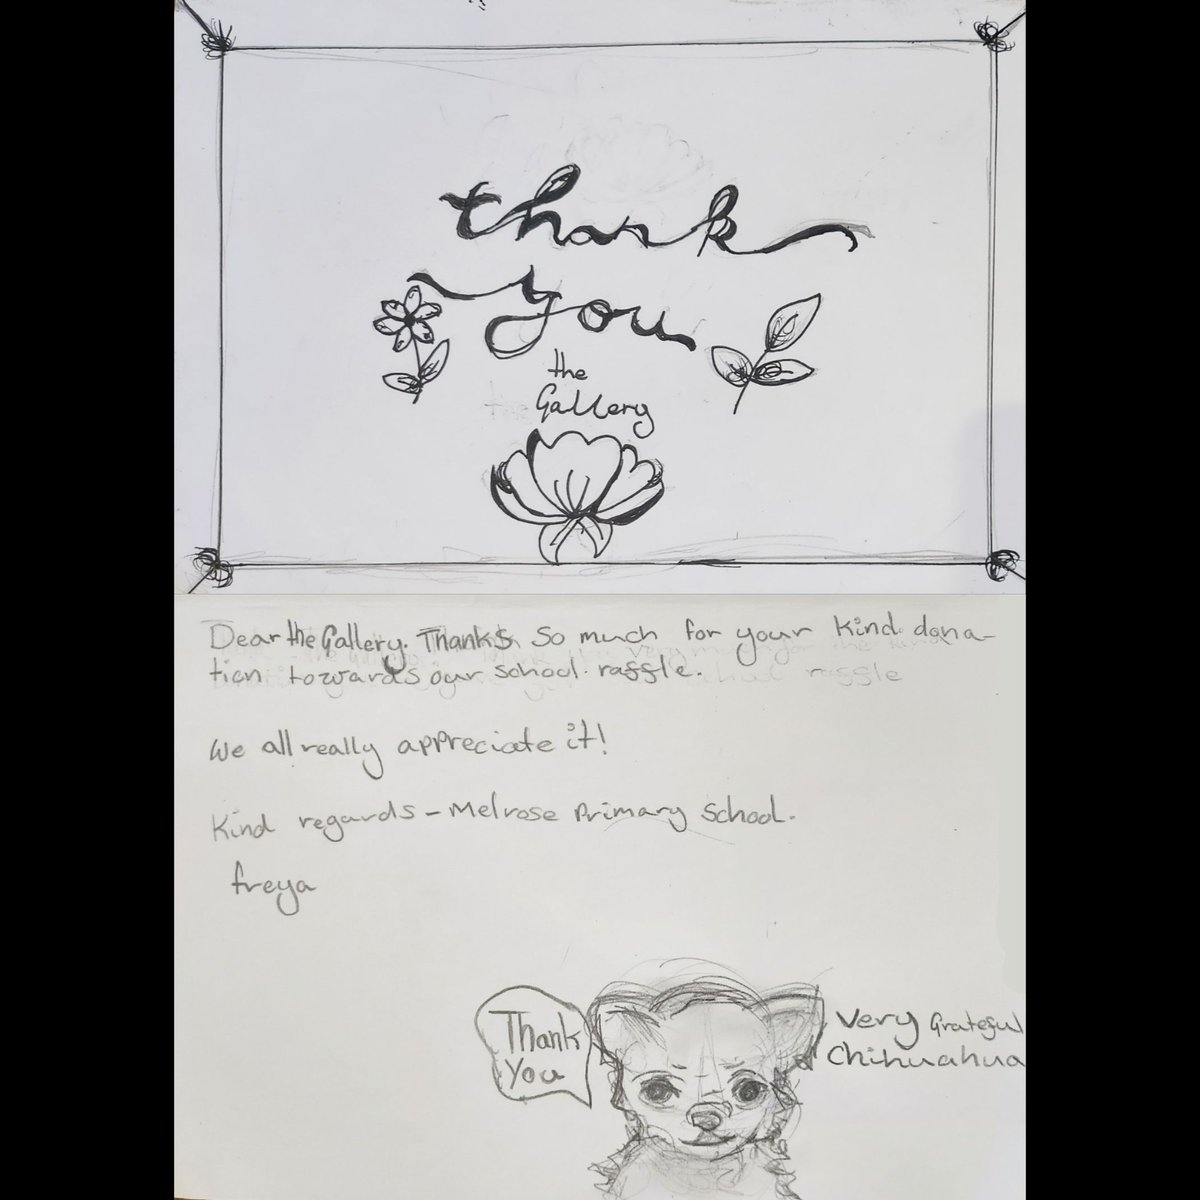 thank
you
the
Gallery
Dear the Gallery. Thanks so much for your kind dona-
tion towards our school raffle.
We all really appreciate it!
Kind regards - Melrose Primary School.
freya
Thank
You
Very Grateful
Chihuahua